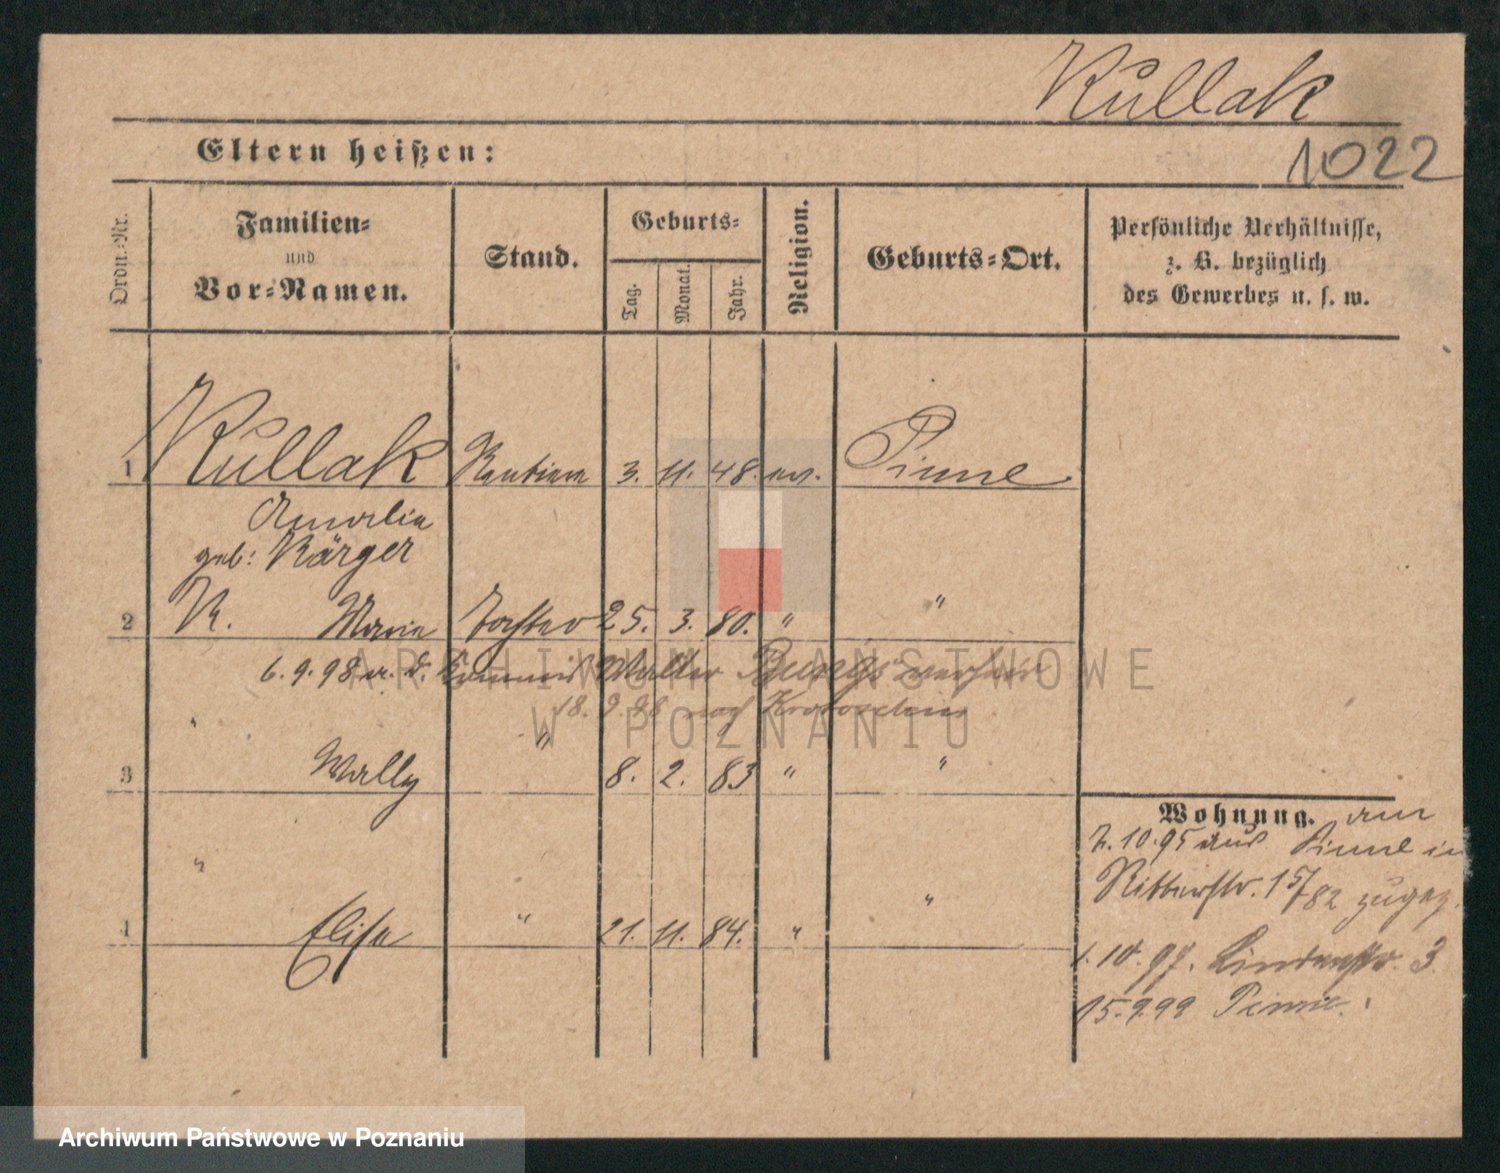 Kullak
1022
Eltern heißen:
Ordn.-Nr.
Familien-
und
Vor-Namen.
Stand.
Geburts-
Tag.
Monat.
Jahr.
Religion.
Geburts-Ort.
Persönliche Verhältnisse,
z. B. bezüglich
des Gewerbes u. s. w.
1 Kullak Rentiere 3. 11. 48. ev. Pinne
Amalie
geb: Kärger
2 K. Marie Tochter 25. 3. 80. " "
6.9.98 a. d. Commis Walter verh.
18.9.98 nach Krotoschin
3 " Wally " 8. 2. 83 " "
4 " Elise " 21. 11. 84. " "
Wohnung. am
7.10.95 aus Pinne in
Ritterstr. 15/82 zugez.
1.10.97. Lindenstr. 3
15.9.99 Pinne.
ARCHIWUM PAŃSTWOWE
W POZNANIU
Archiwum Państwowe w Poznaniu